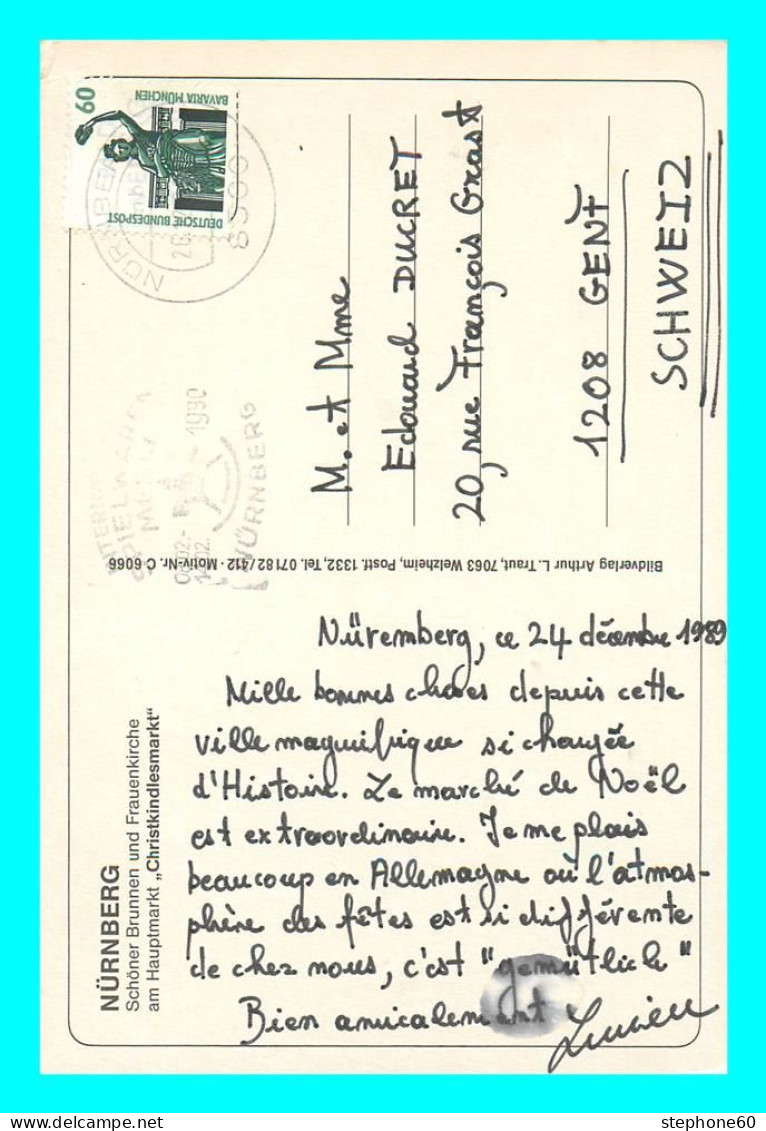 60
BAVARIA MÜNCHEN
DEUTSCHE BUNDESPOST
NÜRNBERG
8500
SPIELWAREN
1990
NÜRNBERG
M. et Mme
Edouard DUCRET
20, rue François Grast
1208 GENF
SCHWEIZ
Bildverlag Arthur L. Traut, 7063 Welzheim, Postf. 1332, Tel. 07182/412 · Motiv-Nr. C 6066
NÜRNBERG
Schöner Brunnen und Frauenkirche
am Hauptmarkt „Christkindlesmarkt"
Nüremberg, ce 24 décembre 1989
Mille bonnes choses depuis cette
ville magnifique si chargée
d'Histoire. Le marché de Noël
est extraordinaire. Je me plais
beaucoup en Allemagne où l'atmos-
phère des fêtes est si différente
de chez nous, c'est "gemütlich"
Bien amicalement Lucien
stephone60